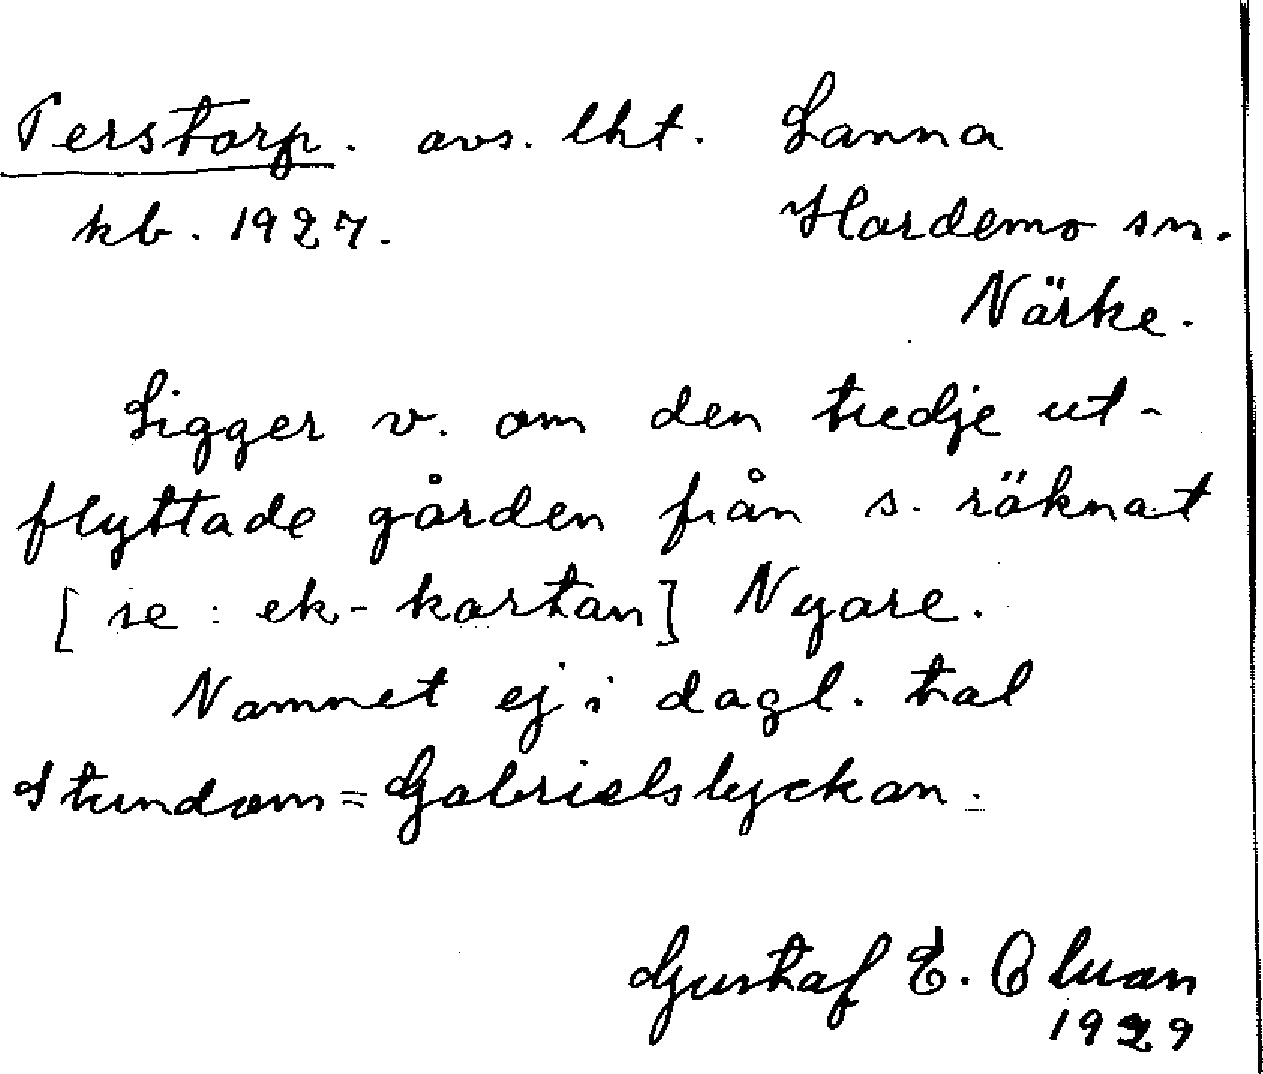 Perstorp. avs. lht. Lanna
kb. 1927. Hardemo sn.
Närke.
Ligger v. om den tredje ut-
flyttade gården från s. räknat
[se: ek-kartan] Nyare.
Namnet ej i dagl. tal
Stundom = Gabrielslyckan.
Gustaf E.
1929